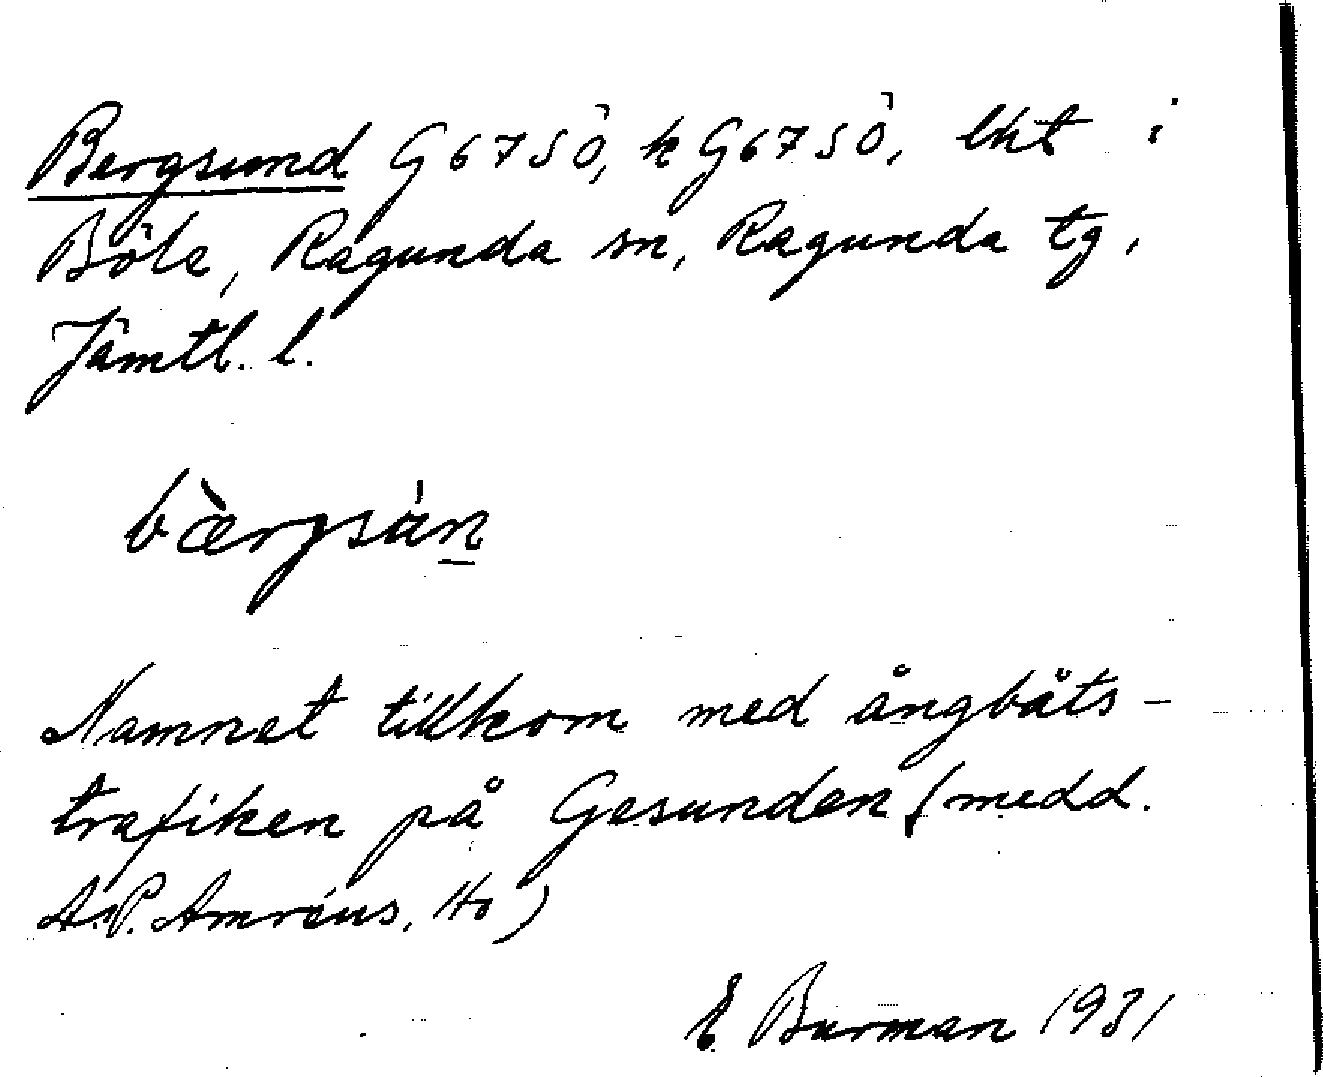 Bergsund G67SÖ, k G67SÖ, lkt i
Böle, Ragunda sn, Ragunda tg,
Jämtl. l.
bærgsán
Namnet tillkom med ångbåts-
trafiken på Gesunden (medd.
A.P. Amréus, Ho)
E Burman 1931